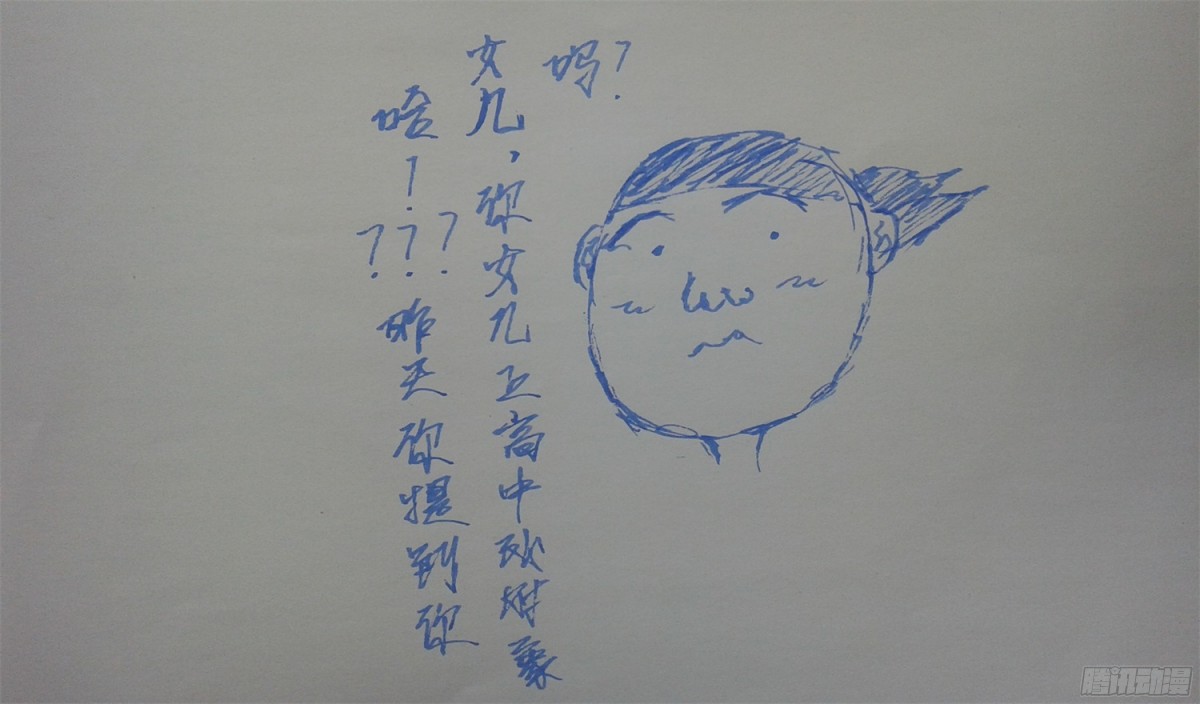 唔！
???
昨天你提到你
女儿，你女儿上高中找对象
吗？
腾讯动漫